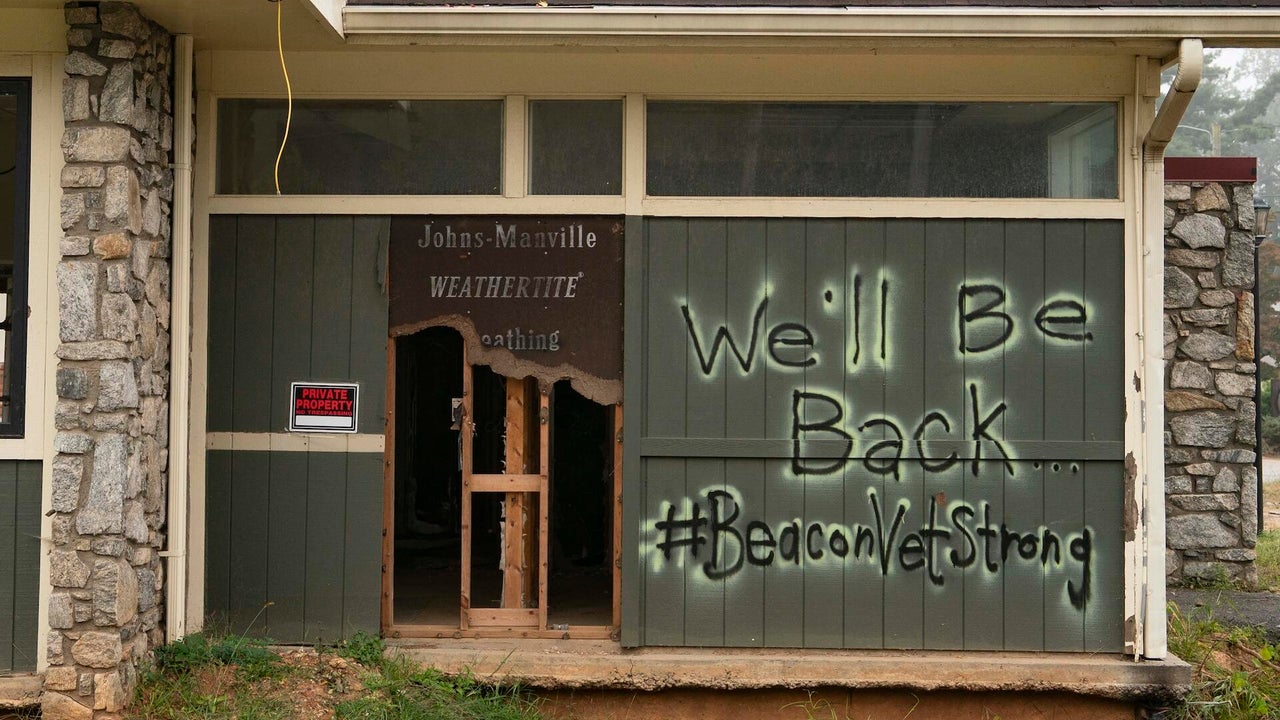 Johns-Manville
WEATHERTITE®
eathing
PRIVATE
PROPERTY
NO TRESPASSING
We'll Be
Back...
#BeaconVetStrong